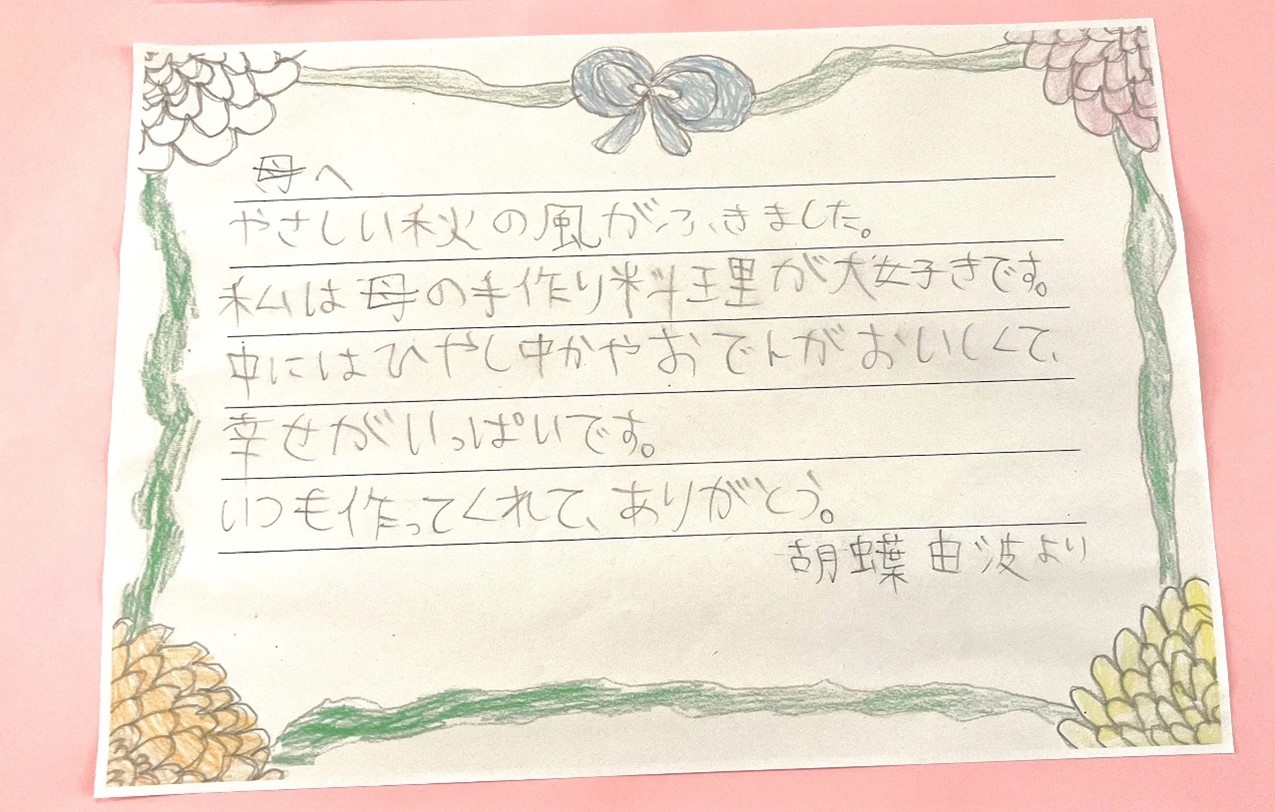 母へ
やさしい秋の風がふきました。
私は母の手作り料理が大好きです。
中にはひやし中かやおでんがおいしくて、
幸せがいっぱいです。
いつも作ってくれて、ありがとう。
胡蝶 由波より